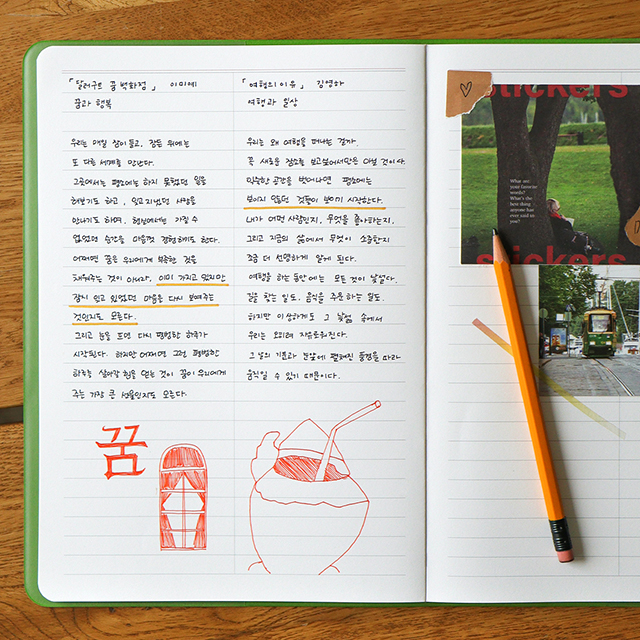 「달러구트 꿈 백화점」 이미예
꿈과 행복
우리는 매일 잠이 들고, 잠든 뒤에는
또 다른 세계를 만난다.
그곳에서는 평소에는 하지 못했던 일을
해보기도 하고, 잊고 지냈던 사람을
만나기도 하며, 현실에서는 가질 수
없었던 순간을 마음껏 경험하기도 한다.
어쩌면 꿈은 우리에게 부족한 것을
채워주는 것이 아니라, 이미 가지고 있지만
잠시 잊고 있었던 마음을 다시 보여주는
것인지도 모른다.
그리고 눈을 뜨면 다시 평범한 하루가
시작된다. 하지만 어쩌면 그런 평범한
하루를 살아갈 힘을 얻는 것이 꿈이 우리에게
주는 가장 큰 선물인지도 모른다.
꿈
「여행의 이유」 김영하
여행과 일상
우리는 왜 여행을 떠나는 걸까.
꼭 새로운 장소를 보고싶어서만은 아닐 것이다.
익숙한 공간을 벗어나면 평소에는
보이지 않던 것들이 보이기 시작한다.
내가 어떤 사람인지, 무엇을 좋아하는지,
그리고 지금의 삶에서 무엇이 소중한지
조금 더 선명하게 알게 된다.
여행을 하는 동안에는 모든 것이 낯설다.
길을 찾는 일도, 음식을 주문하는 일도.
하지만 이상하게도 그 낯섦 속에서
우리는 오히려 자유로워진다.
그 날의 기분과 눈앞에 펼쳐진 풍경을 따라
움직일 수 있기 때문이다.
stickers
What are
your favorite
words?
What's the
best thing
anyone has
ever said to
you?
stickers